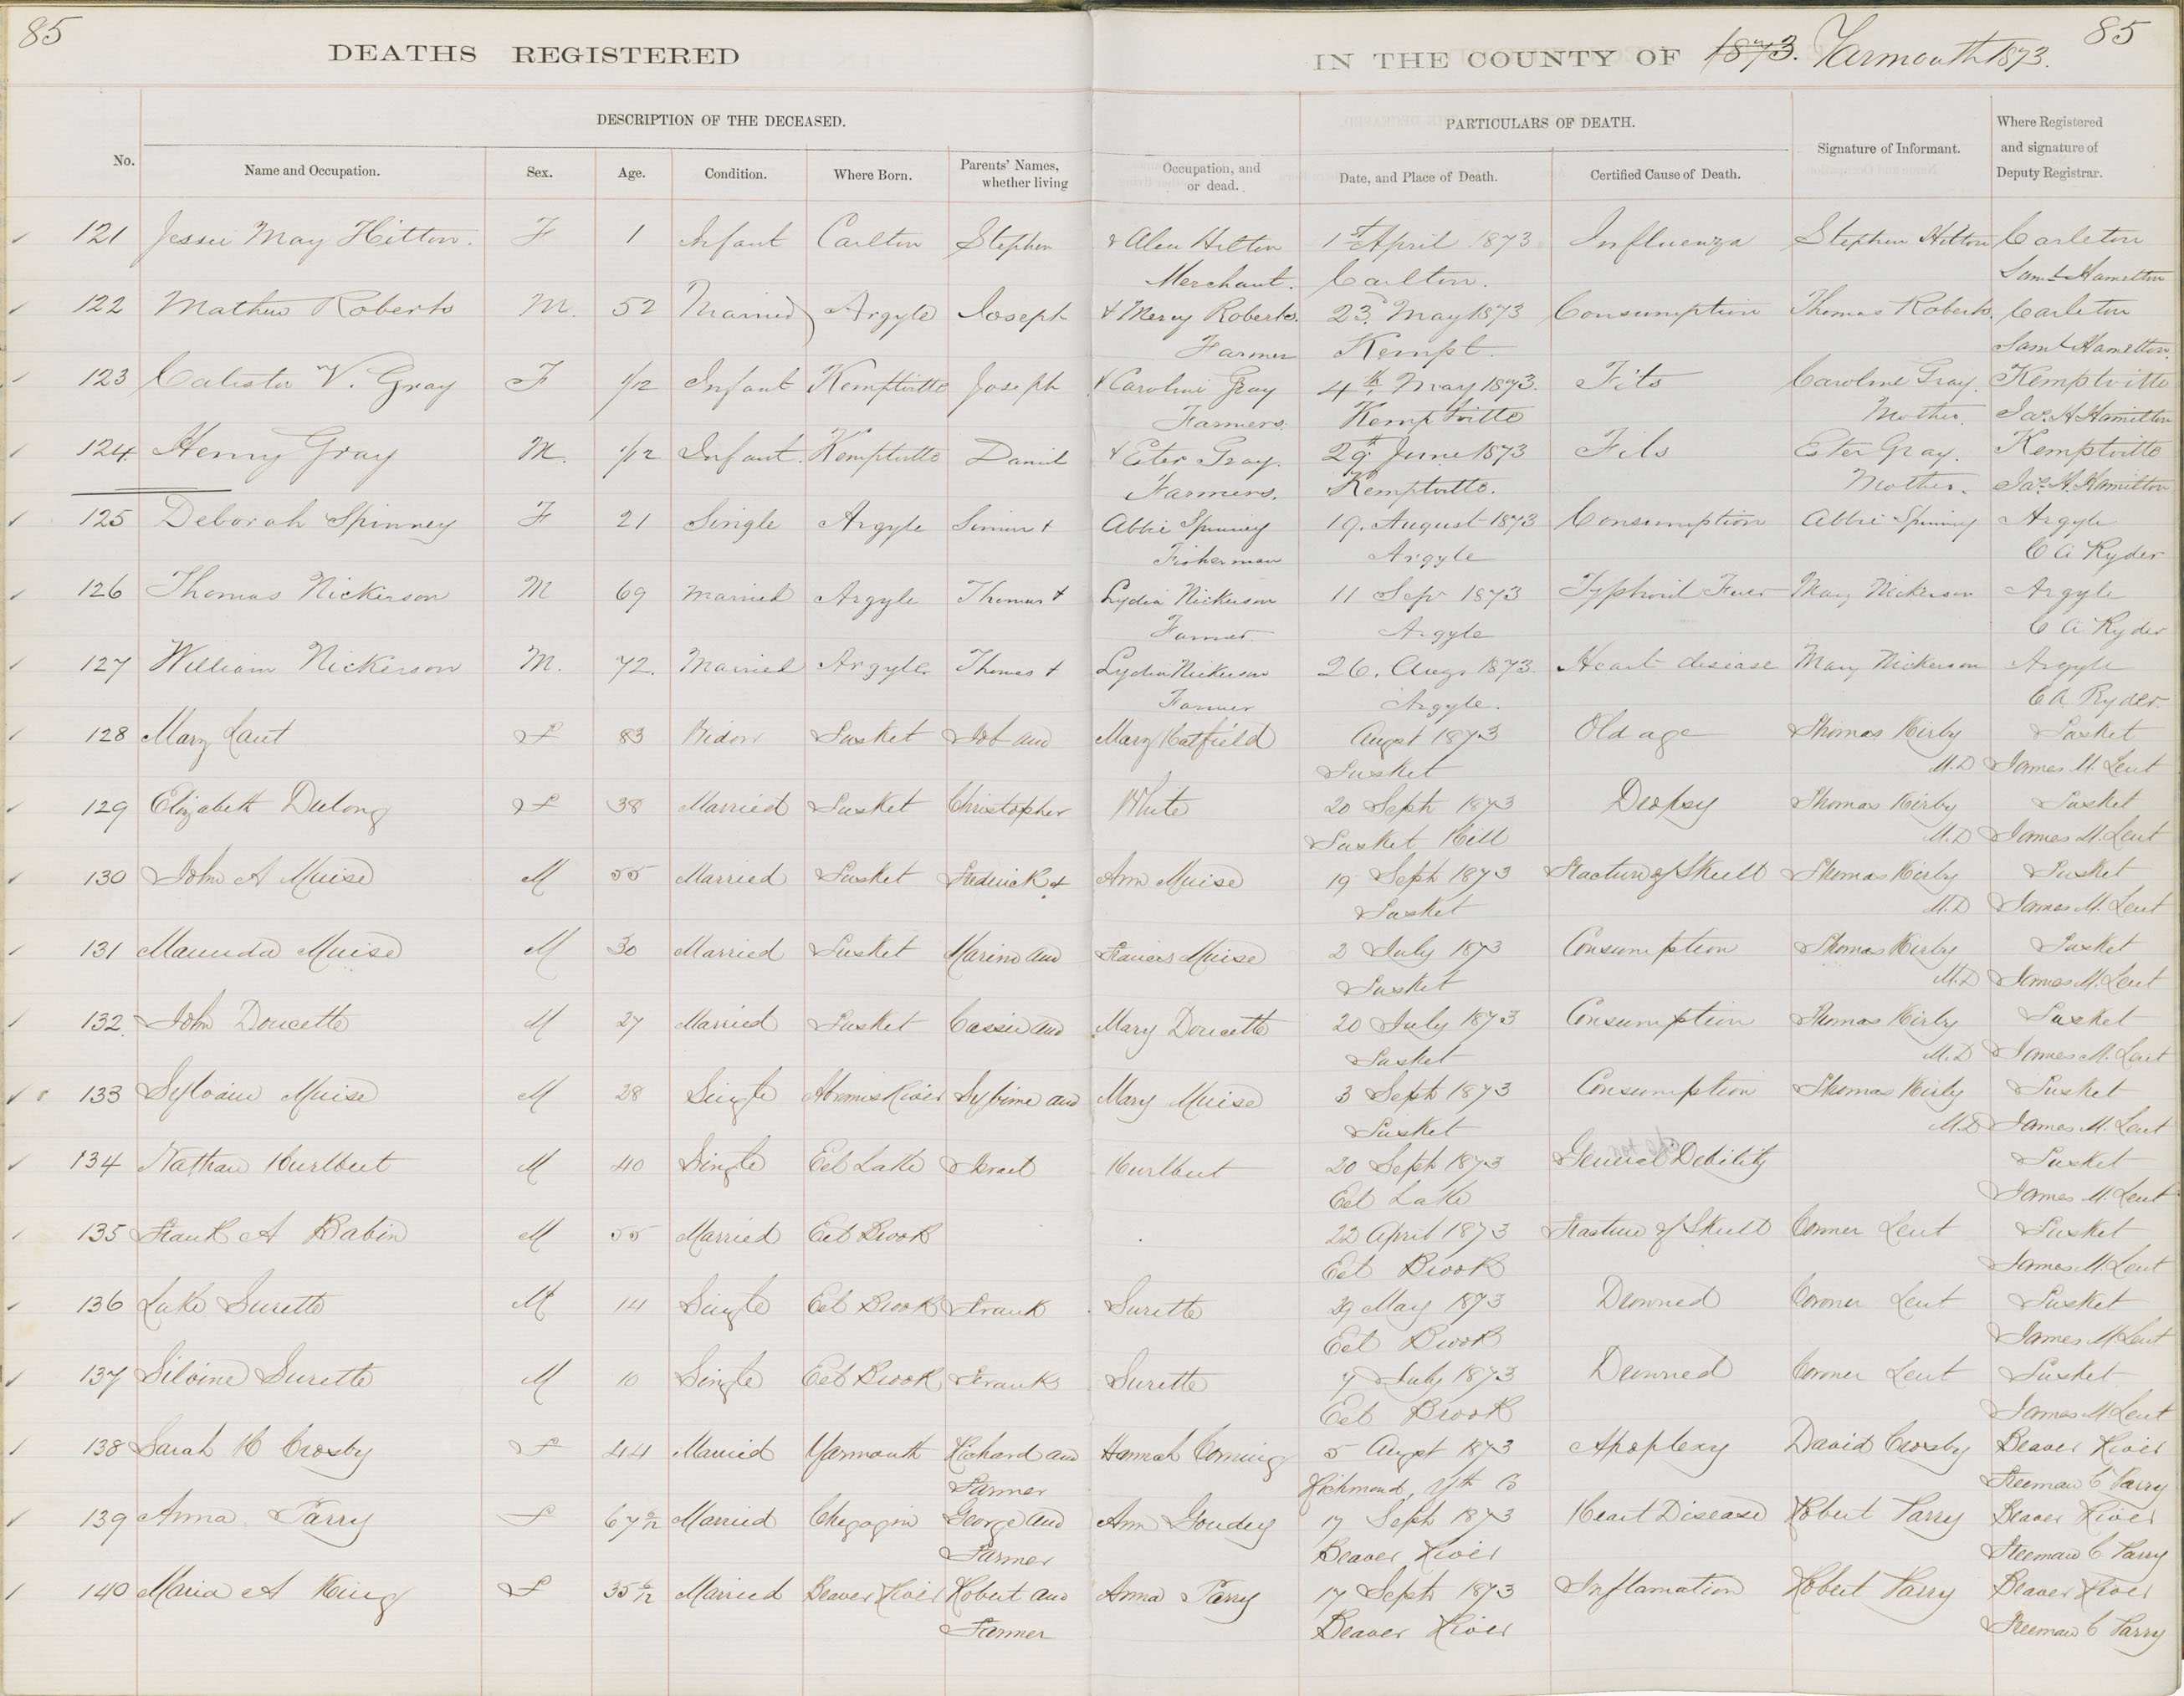 85
85
DEATHS REGISTERED IN THE COUNTY OF 1873. Yarmouth 1873.
DESCRIPTION OF THE DECEASED. PARTICULARS OF DEATH.
No. Name and Occupation. Sex. Age. Condition. Where Born. Parents' Names, whether living Occupation, and or dead. Date, and Place of Death. Certified Cause of Death. Signature of Informant. Where Registered and signature of Deputy Registrar.
121 Jessie May Hilton. F 1 Infant Carlton Stephen & Alen Hilton 1st April 1873 Influenza Stephen Hilton Carleton
Merchant. Carlton. Saml Hamilton
122 Mathew Roberts M. 52 Married Argyle Joseph & Mercy Roberts. 23d May 1873 Consumption Thomas Roberts. Carleton
Farmer Kempt. Saml Hamilton.
123 Calista V. Gray F 1/12 Infant Kemptville Joseph & Caroline Gray 4th May 1873. Fits Caroline Gray. Kemptville
Farmers. Kemptville Mother. Jas. A Hamilton
124 Henry Gray M. 1/12 Infant. Kemptville Daniel & Eter Gray. 29th June 1873 Fits Eter Gray. Kemptville
Farmers. Kemptville. Mother. Jas. A. Hamilton
125 Deborah Spinney F 21 Single Argyle Simon & Abbie Spinney 19. August 1873 Consumption Abbie Spinney Argyle
Fisherman Argyle C A Ryder
126 Thomas Nickerson M 69 married Argyle Thomas & Lydia Nickerson 11 Sep 1873 Typhoid Fever Mary Nickerson Argyle
Farmer. Argyle C A Ryder
127 William Nickerson M. 72. Married Argyle Thomas & Lydia Nickerson 26. Augs 1873. Heart disease Mary Nickerson Argyle
Farmer Argyle. C A. Ryder.
128 Mary Lent F 83 Widow Tusket Job and Mary Hatfield Augst 1873 Old age Thomas Kirby Tusket
Tusket M.D James M. Lent
129 Elizabeth Dulong F 38 Married Tusket Christopher White 20 Sept 1873 Dropsy Thomas Kirby Tusket
Tusket Hill M.D James M. Lent
130 John A Muise M 55 Married Tusket Frederick & Ann Muise 19 Sept 1873 Fracture of Skull Thomas Kirby Tusket
Tusket M.D James M. Lent
131 Maunda Muise M 30 Married Tusket Marino and Frances Muise 2 July 1873 Consumption Thomas Kirby Tusket
Tusket M.D James M. Lent
132. John Doucette M 27 Married Tusket Cassie and Mary Doucette 20 July 1873 Consumption Thomas Kirby Tusket
Tusket M.D James M. Lent
133 Sylvain Muise M 28 Single River Sybime and Mary Muise 3 Sept 1873 Consumption Thomas Kirby Tusket
Tusket M.D James M. Lent
134 Nathan Hurlbut M 40 Single Eel Lake Israel Hurlbut 20 Sept 1873 General Debility Tusket
Eel Lake James M. Lent
135 Frank A Babin M 55 Married Eel Brook 22 April 1873 Fracture of Skull Coroner Lent Tusket
Eel Brook James M. Lent
136 Luke Surette M 14 Single Eel Brook Frank Surette 29 May 1873 Drowned Coroner Lent Tusket
Eel Brook James M Lent
137 Silvine Surette M 10 Single Eel Brook Frank Surette 7 July 1873 Drowned Coroner Lent Tusket
Eel Brook James M Lent
138 Sarah H Crosby F 44 Married Yarmouth Richard and Hannah Corning 5 Augst 1873 Apoplexy David Crosby Beaver River
Farmer Richmond, Yth Co Freeman C Parry
139 Anna Parry F 67 6/12 Married Chegogin George and Ann Goudey 17 Sept 1873 Heart Disease Robert Parry Beaver River
Farmer Beaver River Freeman C Parry
140 Maria A King F 35 6/12 Married Beaver River Robert and Anna Parry 17 Sept 1873 Inflamation Robert Parry Beaver River
Farmer Beaver River Freeman C Parry